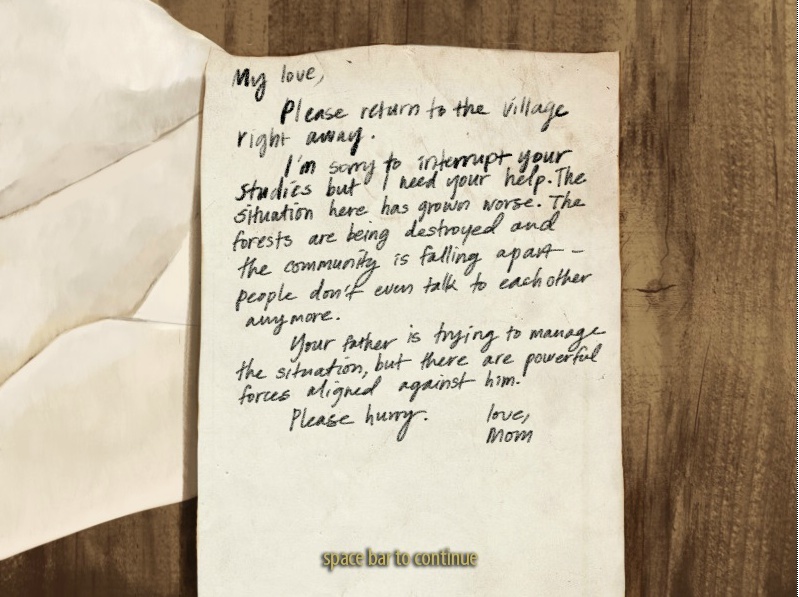 My love,
Please return to the village
right away.
I'm sorry to interrupt your
studies but I need your help. The
situation here has grown worse. The
forests are being destroyed and
the community is falling apart –
people don't even talk to each other
anymore.
Your father is trying to manage
the situation, but there are powerful
forces aligned against him.
Please hurry.
love,
Mom
space bar to continue